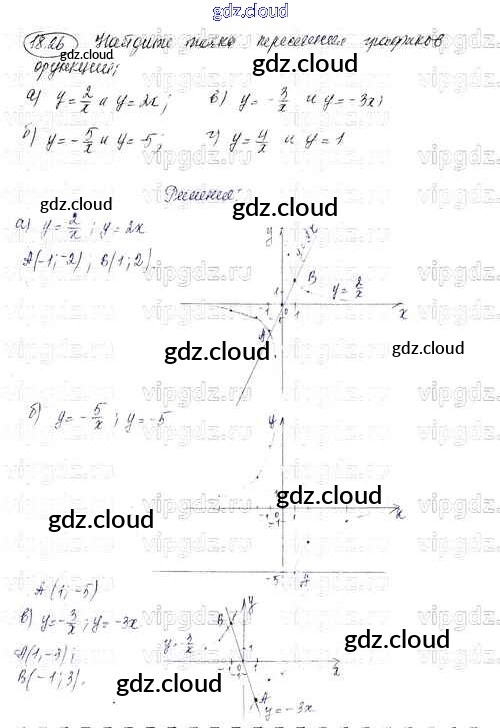 gdz.cloud
18.26 Найдите точки пересечения графиков
функций:
а) y = 2/x и y = 2x; в) y = -3/x и y = -3x;
б) y = -5/x и y = -5; г) y = 4/x и y = 1
Решение:
а) y = 2/x; y = 2x
A(-1; -2); B(1; 2)
y
B
y = 2/x
-1 0 1
x
A
б) y = -5/x; y = -5
y
-1 0 1
x
-1
-5
A
A(1; -5)
в) y = -3/x; y = -3x
A(1, -3);
B(-1; 3).
y
B
y = -3/x
x
A
y = -3x
gdz.cloud
gdz.cloud
gdz.cloud
gdz.cloud
gdz.cloud
gdz.cloud
gdz.cloud
gdz.cloud
gdz.cloud
gdz.cloud
gdz.cloud
vipgdz.ru